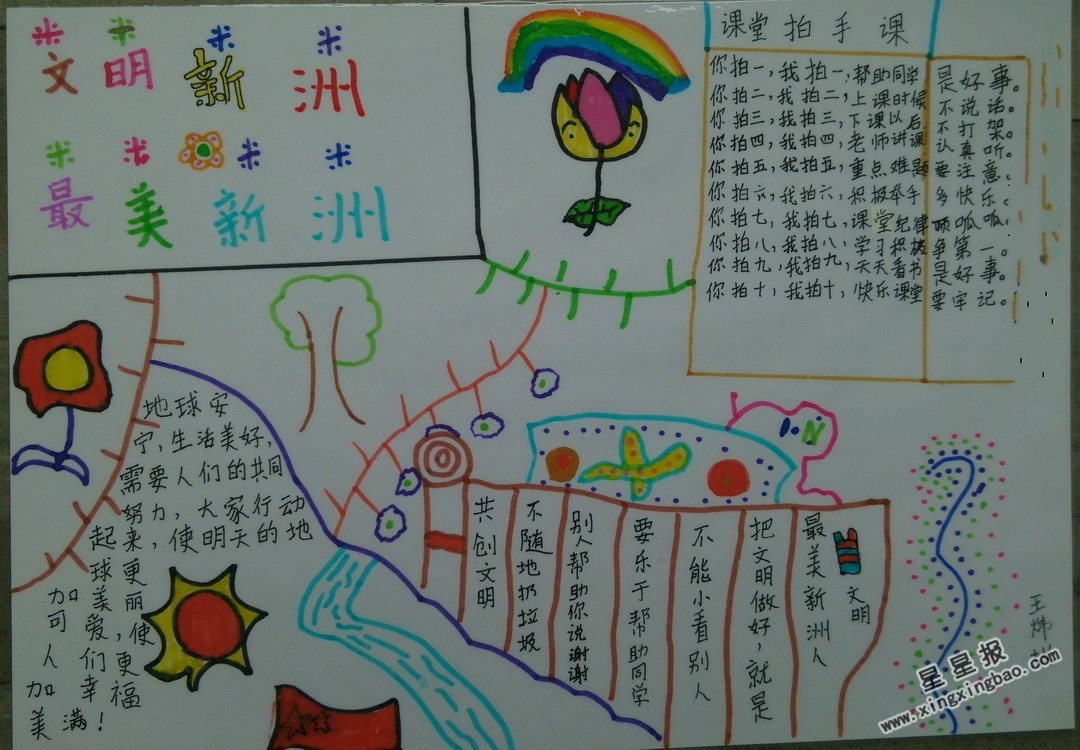 文明新洲
最美新洲
课堂拍手课
你拍一,我拍一,帮助同学是好事。
你拍二,我拍二,上课时候不说话。
你拍三,我拍三,下课以后不打架。
你拍四,我拍四,老师讲课认真听。
你拍五,我拍五,重点难题要注意、
你拍六,我拍六,积极举手多快乐、
你拍七,我拍七,课堂纪律顶呱呱、
你拍八,我拍八,学习积极争第一。
你拍九,我拍九,天天看书是好事。
你拍十,我拍十,快乐课堂要牢记。
地球安
宁,生活美好,
需要人们的共同
努力,大家行动
起来,使明天的地
球更
加美丽
可爱,使
人们更
加幸福
美满!
共创文明
不随地扔垃圾
别人帮助你说谢谢
要乐于帮助同学
不能小看别人
把文明做好,就是
最美新洲人
文明
王炜
星星报
www.xingxingbao.com